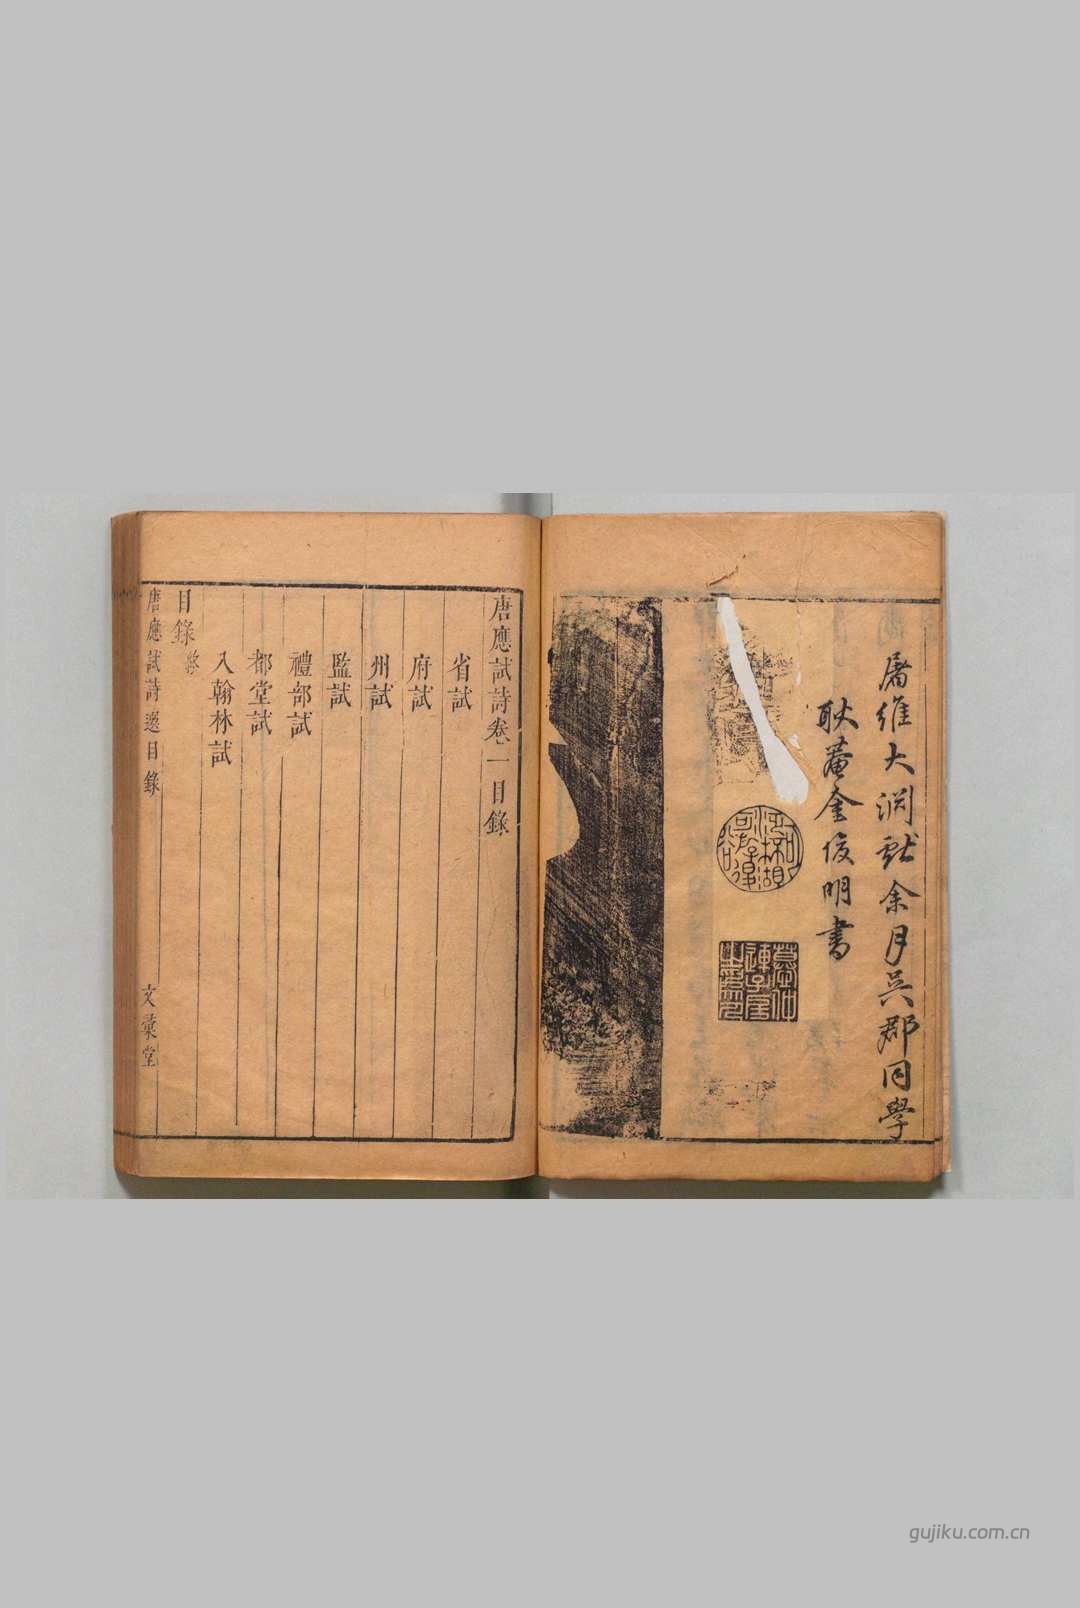 屠維大淵獻余月吳郡同學
耿菴金俊明書
唐應試詩卷一目錄
省試
府試
州試
監試
禮部試
都堂試
入翰林試
目錄終
唐應試詩選目錄
文彙堂
gujiku.com.cn